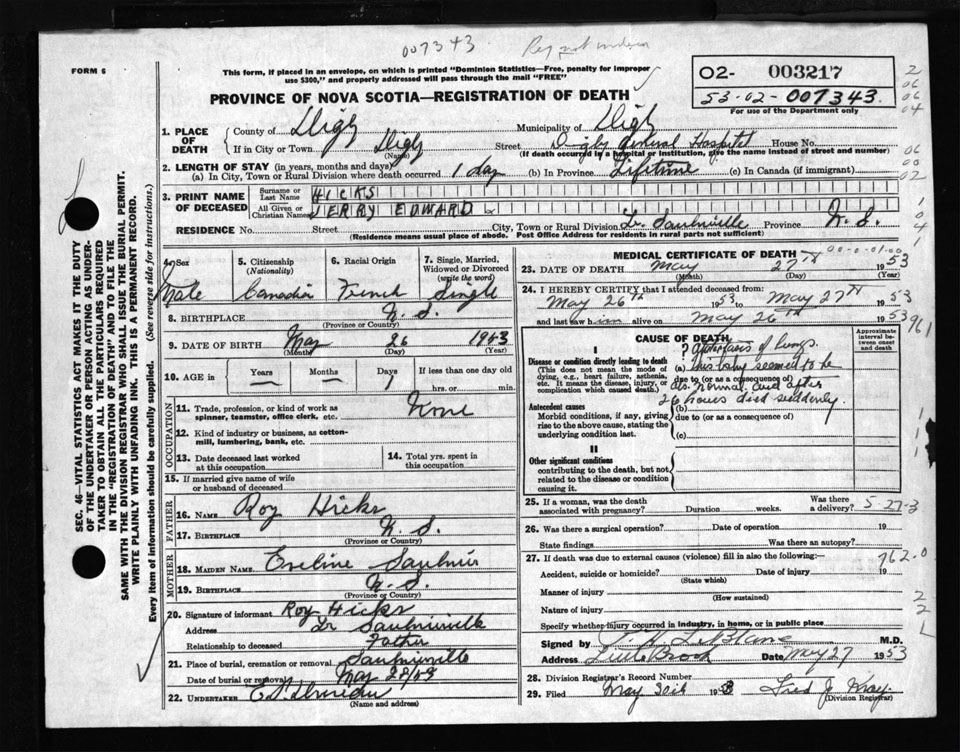 007343
FORM 6
This form, if placed in an envelope, on which is printed "Dominion Statistics—Free, penalty for improper
use $300," and properly addressed will pass through the mail "FREE"
02- 003217
53-02-007343
For use of the Department only
PROVINCE OF NOVA SCOTIA—REGISTRATION OF DEATH
1. PLACE OF DEATH
County of Digby
Municipality of Digby
If in City or Town Digby (Name)
Street Digby General Hospital House No.
(If death occurred in a hospital or institution, give the name instead of street and number)
2. LENGTH OF STAY (in years, months and days)
(a) In City, Town or Rural Division where death occurred 1 day (b) In Province Lifetime (c) In Canada (if immigrant)
3. PRINT NAME OF DECEASED
Surname or Last Name HICKS
All Given or Christian Names JERRY EDWARD
RESIDENCE No. Street City, Town or Rural Division Lr Saulnierville Province N.S.
(Residence means usual place of abode. Post Office Address for residents in rural parts not sufficient)
4. Sex
Male
5. Citizenship (Nationality)
Canadian
6. Racial Origin
French
7. Single, Married, Widowed or Divorced (write the word)
Single
8. BIRTHPLACE N.S.
(Province or Country)
9. DATE OF BIRTH May 26
(Month) (Day) (Year)
10. AGE in Years Months Days If less than one day old
1
hrs. or min.
OCCUPATION
11. Trade, profession, or kind of work as
spinner, teamster, office clerk, etc.
12. Kind of industry or business, as cotton-
mill, lumbering, bank, etc.
13. Date deceased last worked
at this occupation
14. Total yrs. spent in
this occupation
15. If married give name of wife
or husband of deceased
FATHER
16. NAME Roy Hicks
17. BIRTHPLACE N.S.
(Province or Country)
MOTHER
18. MAIDEN NAME Eveline Saulnier
19. BIRTHPLACE N.S.
(Province or Country)
20. Signature of informant Roy Hicks
Address Lr Saulnierville
Relationship to deceased Father
21. Place of burial, cremation or removal Saulnierville
Date of burial or removal May 28/53
22. UNDERTAKER
(Name and address)
MEDICAL CERTIFICATE OF DEATH
23. DATE OF DEATH May 27th 1953
(Month) (Day) (Year)
24. I HEREBY CERTIFY that I attended deceased from:
May 26th 1953 to May 27th 1953
and last saw him alive on May 26th 1953
961
CAUSE OF DEATH
Approximate interval between onset and death
I
Disease or condition directly leading to death
(This does not mean the mode of
dying, e.g., heart failure, asthenia,
etc. It means the disease, injury, or
complication which caused death.)
? Atelectasis of lungs.
(a) This baby seemed to be
due to (or as a consequence of)
as normal and after
26 hours died suddenly.
Antecedent causes
Morbid conditions, if any, giving
rise to the above cause, stating the
underlying condition last.
(b)
due to (or as a consequence of)
(c)
II
Other significant conditions
contributing to the death, but not
related to the disease or condition
causing it.
25. If a woman, was the death
associated with pregnancy? Duration weeks. Was there
a delivery?
5-27-3
26. Was there a surgical operation? Date of operation 19
State findings Was there an autopsy?
27. If death was due to external causes (violence) fill in also the following:—
762.0
Accident, suicide or homicide? Date of injury 19
(State which)
Manner of injury
(How sustained)
Nature of injury
Specify whether injury occurred in industry, in home, or in public place
Signed by LeBlanc M.D.
Address Little Brook Date May 27 1953
28. Division Registrar's Record Number
29. Filed May 30th 1953 Fred J. May.
(Division Registrar)
SEC. 46—VITAL STATISTICS ACT MAKES IT THE DUTY
OF THE UNDERTAKER OR PERSON ACTING AS UNDER-
TAKER TO OBTAIN ALL THE PARTICULARS REQUIRED
IN THE "REGISTRATION OF DEATH" AND TO FILE THE
SAME WITH THE DIVISION REGISTRAR WHO SHALL ISSUE THE BURIAL PERMIT.
WRITE PLAINLY WITH UNFADING INK. THIS IS A PERMANENT RECORD.
Every item of information should be carefully supplied. (See reverse side for instructions.)